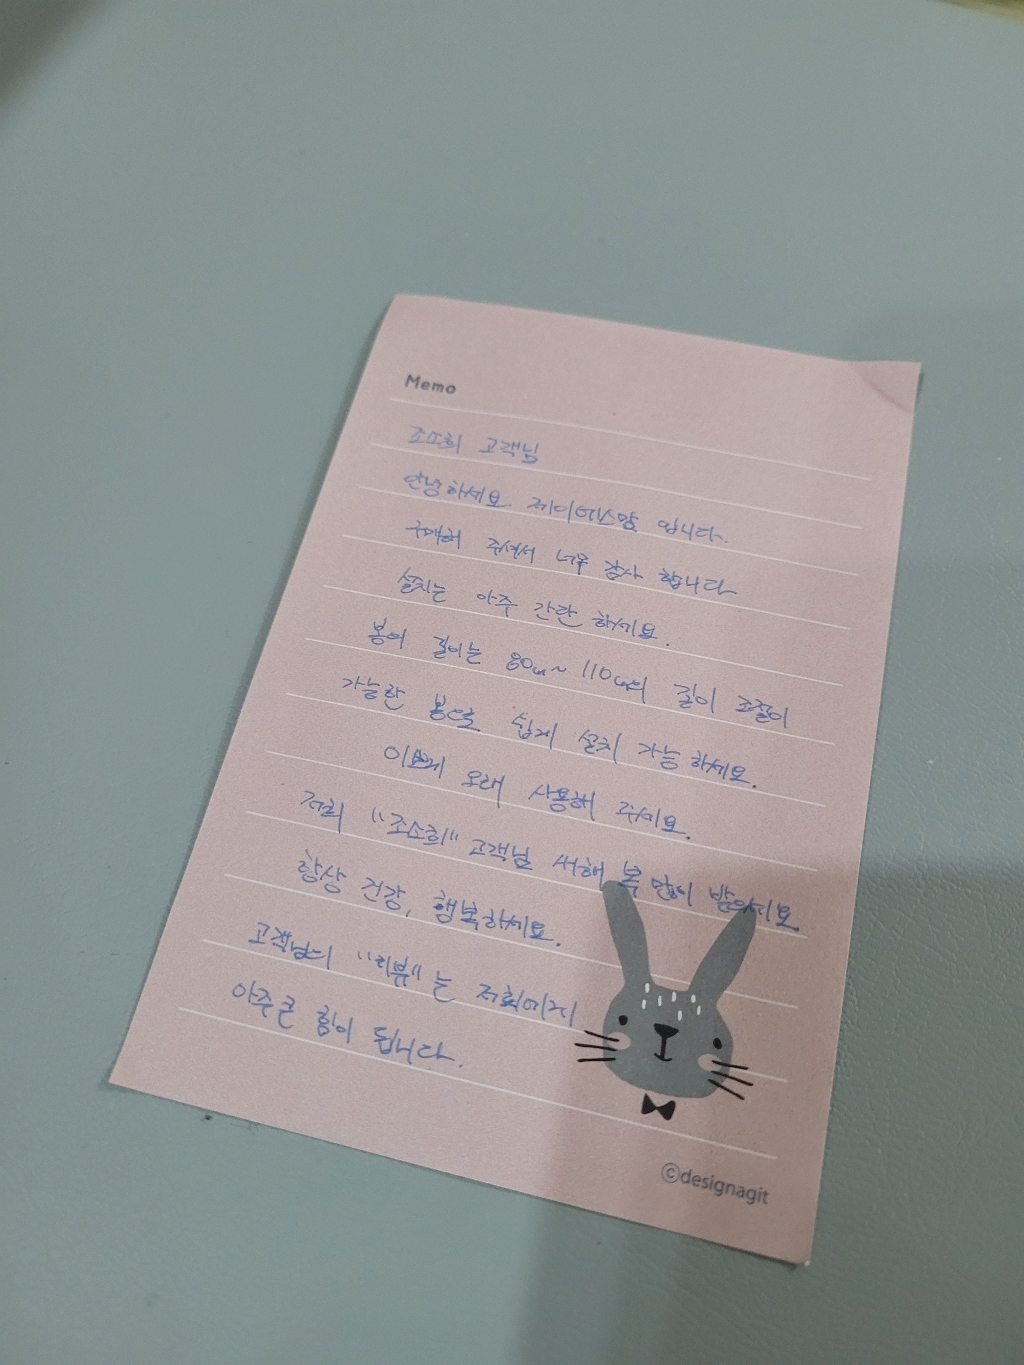 Memo
조소희 고객님
안녕하세요 제이에스맘 입니다.
구매해 주셔서 너무 감사 합니다
설치는 아주 간단 하세요.
봉의 길이는 80cm~ 110cm의 길이 조절이
가능한 봉으로 쉽게 설치 가능 하세요.
이쁘게 오래 사용해 주세요.
저희 "조소희" 고객님 새해 복 많이 받으세요
항상 건강, 행복하세요.
고객님의 "리뷰"는 저희에게
아주 큰 힘이 됩니다.
©designagit